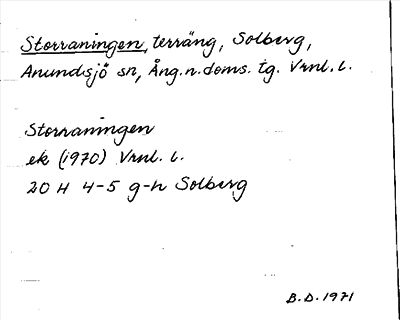 Storraningen, terräng, Solberg,
Anundsjö sn, Ång.n.doms. tg. Vrnl. l.
Storraningen
ek (1970) Vrnl. l.
20 H 4-5 g-h Solberg
B.D. 1971